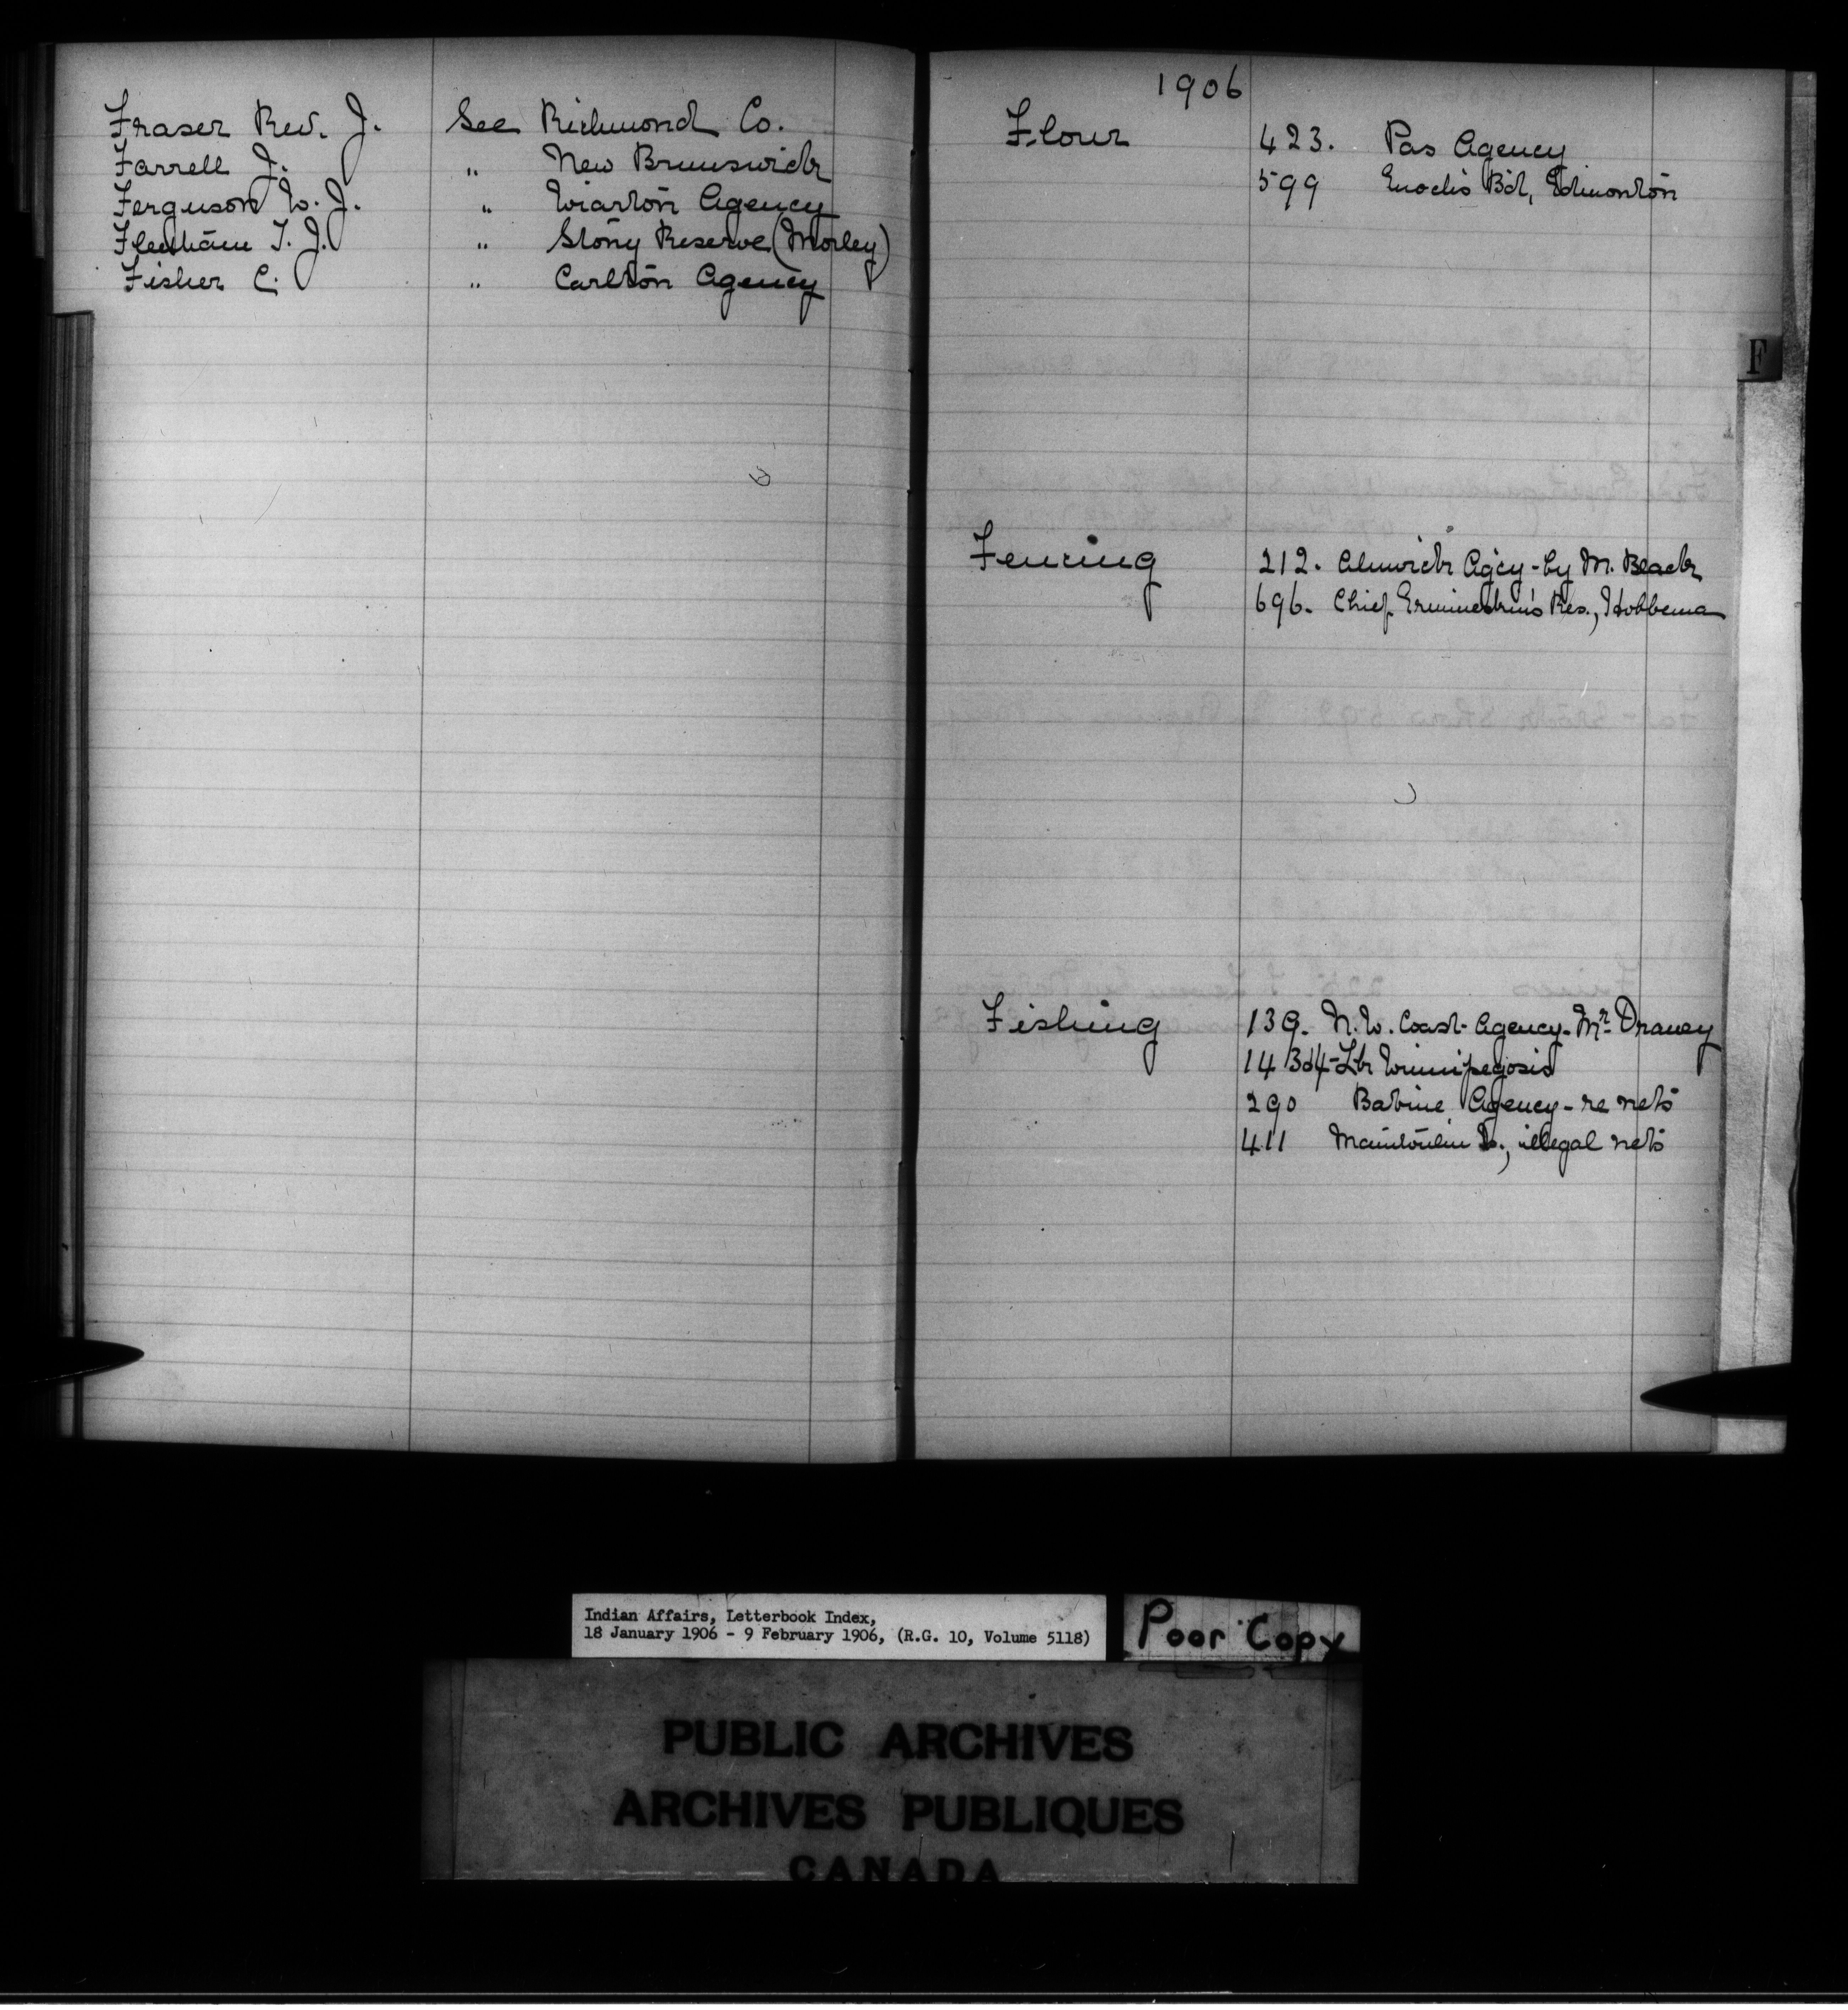 Fraser Rev. J. See Richmond Co.
Farrell J. " New Brunswick
Ferguson W. J. " Wiarton Agency
Fleetham T. J. " Stony Reserve (Morley)
Fisher C. " Carlton Agency
1906
Flour 423. Pas Agency
599 Enoch's Bd, Edmonton
F
Fencing 212. Alnwick Agcy - by M. Black
696. Chief Ermineskin's Res., Hobbema
Fishing 139. N.W. Coast Agency - Mr Draney
14 Lk Winnipegosis
290 Babine Agency - re nets
411 Manitoulin Is., illegal nets
Indian Affairs, Letterbook Index,
18 January 1906 - 9 February 1906, (R.G. 10, Volume 5118)
Poor Copy
PUBLIC ARCHIVES
ARCHIVES PUBLIQUES
CANADA